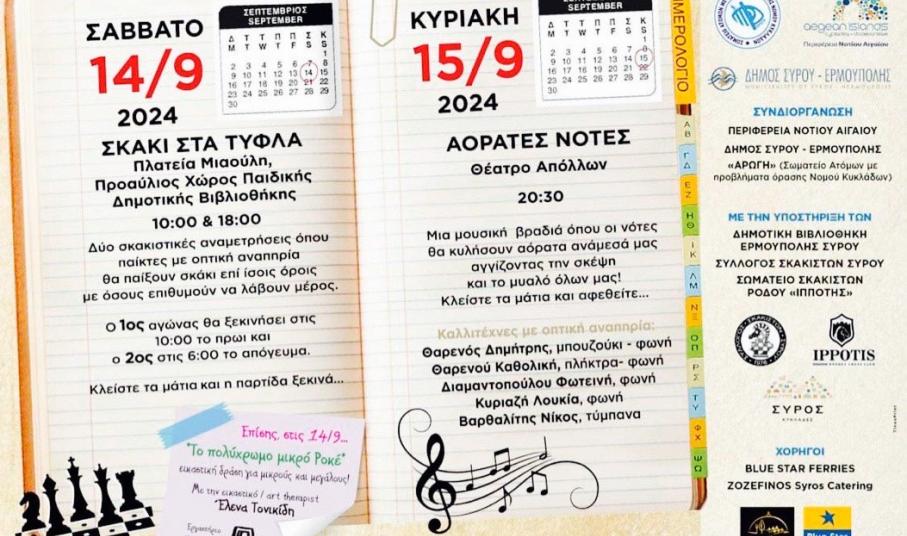 ΣΑΒΒΑΤΟ
14/9
2024
ΣΕΠΤΕΜΒΡΙΟΣ
SEPTEMBER
Δ Τ Τ Π Π Σ Κ
M T W T F S S
1
2 3 4 5 6 7 8
9 10 11 12 13 14 15
16 17 18 19 20 21 22
23 24 25 26 27 28 29
30
ΣΚΑΚΙ ΣΤΑ ΤΥΦΛΑ
Πλατεία Μιαούλη,
Προαύλιος Χώρος Παιδικής
Δημοτικής Βιβλιοθήκης
10:00 & 18:00
Δύο σκακιστικές αναμετρήσεις όπου
παίκτες με οπτική αναπηρία
θα παίξουν σκάκι επί ίσοις όροις
με όσους επιθυμούν να λάβουν μέρος.
Ο 1ος αγώνας θα ξεκινήσει στις
10:00 το πρωι και
ο 2ος στις 6:00 το απόγευμα.
Κλείστε τα μάτια και η παρτίδα ξεκινά...
Επίσης, στις 14/9...
"Το πολύχρωμο μικρό Ροκέ"
εικαστική δράση για μικρούς και μεγάλους!
Με την εικαστικό / art therapist
Έλενα Τονικίδη
Εργαστήριο
ΚΥΡΙΑΚΗ
15/9
2024
SEPTEMBER
ΑΟΡΑΤΕΣ ΝΟΤΕΣ
Θέατρο Απόλλων
20:30
Μια μουσική βραδιά όπου οι νότες
θα κυλήσουν αόρατα ανάμεσά μας
αγγίζοντας την σκέψη
και το μυαλό όλων μας!
Κλείστε τα μάτια και αφεθείτε...
Καλλιτέχνες με οπτική αναπηρία:
Θαρενός Δημήτρης, μπουζούκι - φωνή
Θαρενού Καθολική, πλήκτρα- φωνή
Διαμαντοπούλου Φωτεινή, φωνή
Κυριαζή Λουκία, φωνή
Βαρθαλίτης Νίκος, τύμπανα
ΗΜΕΡΟΛΟΓΙΟ
ΑΒ
ΓΔ
ΕΖ
ΗΘ
ΙΚ
ΛΜ
ΝΞ
ΟΠ
ΡΣ
ΤΥ
ΦΧ
ΨΩ
aegean islands
Περιφέρεια Νοτίου Αιγαίου
ΔΗΜΟΣ ΣΥΡΟΥ - ΕΡΜΟΥΠΟΛΗΣ
MUNICIPALITY OF SYROS - HERMOUPOLIS
ΣΥΝΔΙΟΡΓΑΝΩΣΗ
ΠΕΡΙΦΕΡΕΙΑ ΝΟΤΙΟΥ ΑΙΓΑΙΟΥ
ΔΗΜΟΣ ΣΥΡΟΥ - ΕΡΜΟΥΠΟΛΗΣ
«ΑΡΩΓΗ» (Σωματείο Ατόμων με
προβλήματα όρασης Νομού Κυκλάδων)
ΜΕ ΤΗΝ ΥΠΟΣΤΗΡΙΞΗ ΤΩΝ
ΔΗΜΟΤΙΚΗ ΒΙΒΛΙΟΘΗΚΗ
ΕΡΜΟΥΠΟΛΗΣ ΣΥΡΟΥ
ΣΥΛΛΟΓΟΣ ΣΚΑΚΙΣΤΩΝ ΣΥΡΟΥ
ΣΩΜΑΤΕΙΟ ΣΚΑΚΙΣΤΩΝ
ΡΟΔΟΥ «ΙΠΠΟΤΗΣ»
IPPOTIS
ΣΥΡΟΣ
ΚΥΚΛΑΔΕΣ
ΧΟΡΗΓΟΙ
BLUE STAR FERRIES
ZOZEFINOS Syros Catering